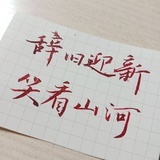 辞旧迎新
笑看山河